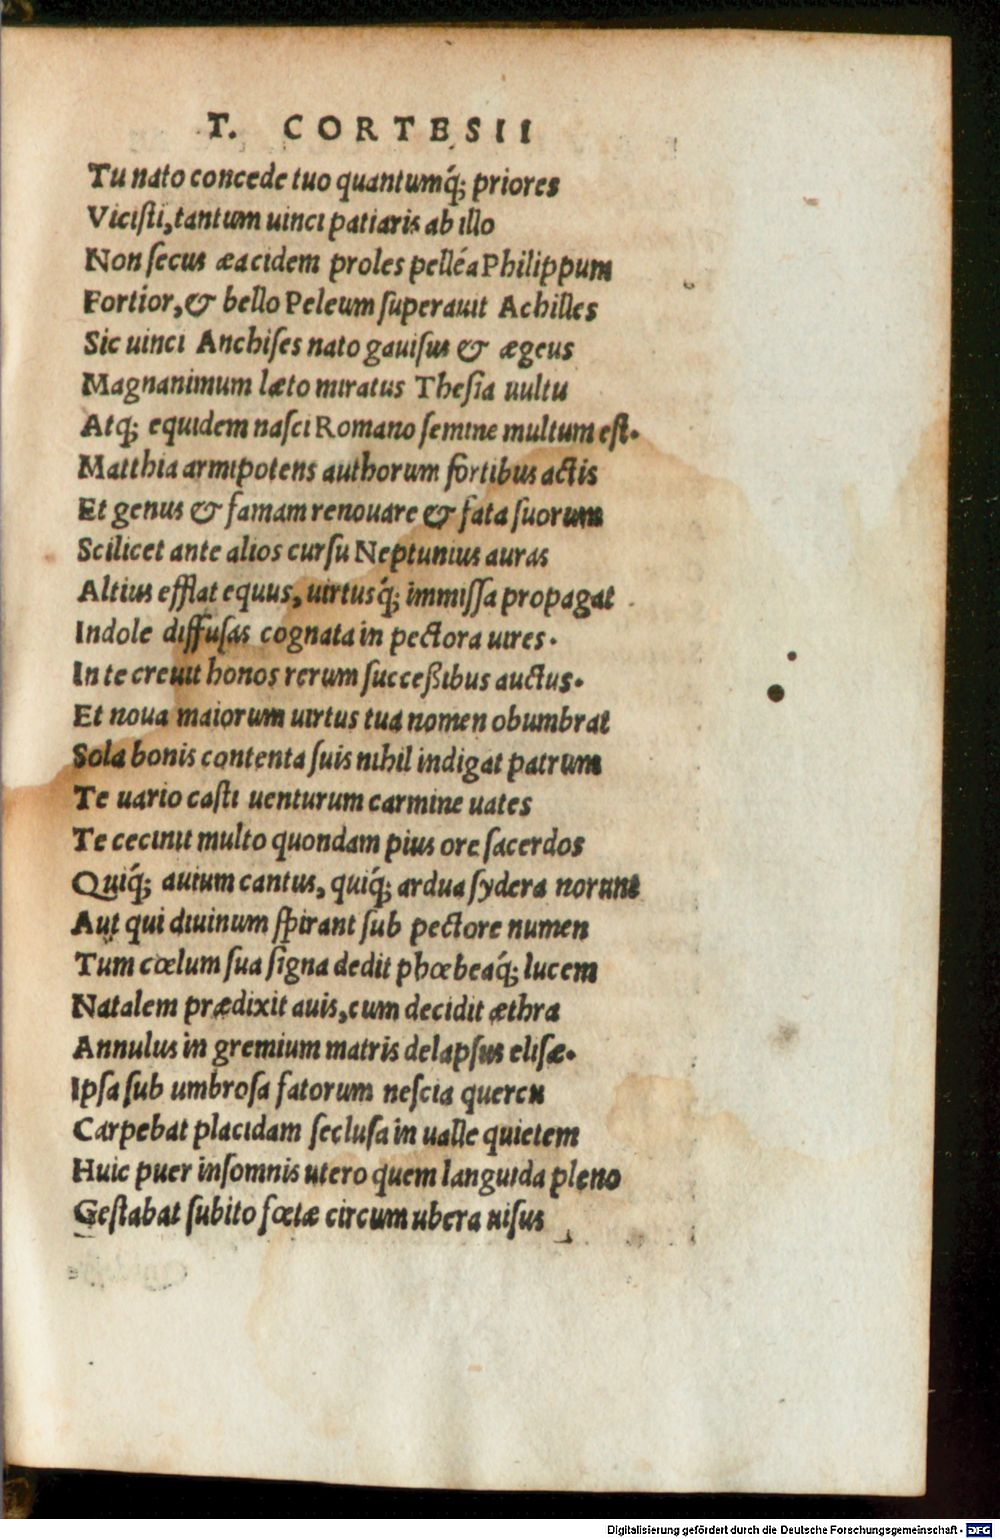 T. CORTESII
Tu nato concede tuo quantumq́; priores
Viciſti, tantum uinci patiaris ab illo
Non ſecus æacidem proles pelléa Philippum
Fortior, & bello Peleum ſuperauit Achilles
Sic uinci Anchiſes nato gauiſus & ægeus
Magnanimum læto miratus Theſia uultu
Atq; equidem naſci Romano ſemine multum eſt.
Matthia armipotens authorum fortibus actis
Et genus & famam renouare & fata ſuorum
Scilicet ante alios curſu Neptunius auras
Altius efflat equus, uirtusq́; immiſſa propagat
Indole diffuſas cognata in pectora uires.
In te creuit honos rerum ſucceßibus auctus.
Et noua maiorum uirtus tua nomen obumbrat
Sola bonis contenta ſuis nihil indigat patrum
Te uario caſti uenturum carmine uates
Te cecinit multo quondam pius ore ſacerdos
Quiq́; auium cantus, quiq́; ardua ſydera norunt
Aut qui diuinum ſpirant ſub pectore numen
Tum cœlum ſua ſigna dedit phœbeaq́; lucem
Natalem prædixit auis, cum decidit æthra
Annulus in gremium matris delapſus eliſæ.
Ipſa ſub umbroſa fatorum neſcia quercu
Carpebat placidam ſecluſa in ualle quietem
Huic puer inſomnis utero quem languida pleno
Geſtabat ſubito fœtæ circum ubera uiſus
Digitalisierung gefördert durch die Deutsche Forschungsgemeinschaft - DFG